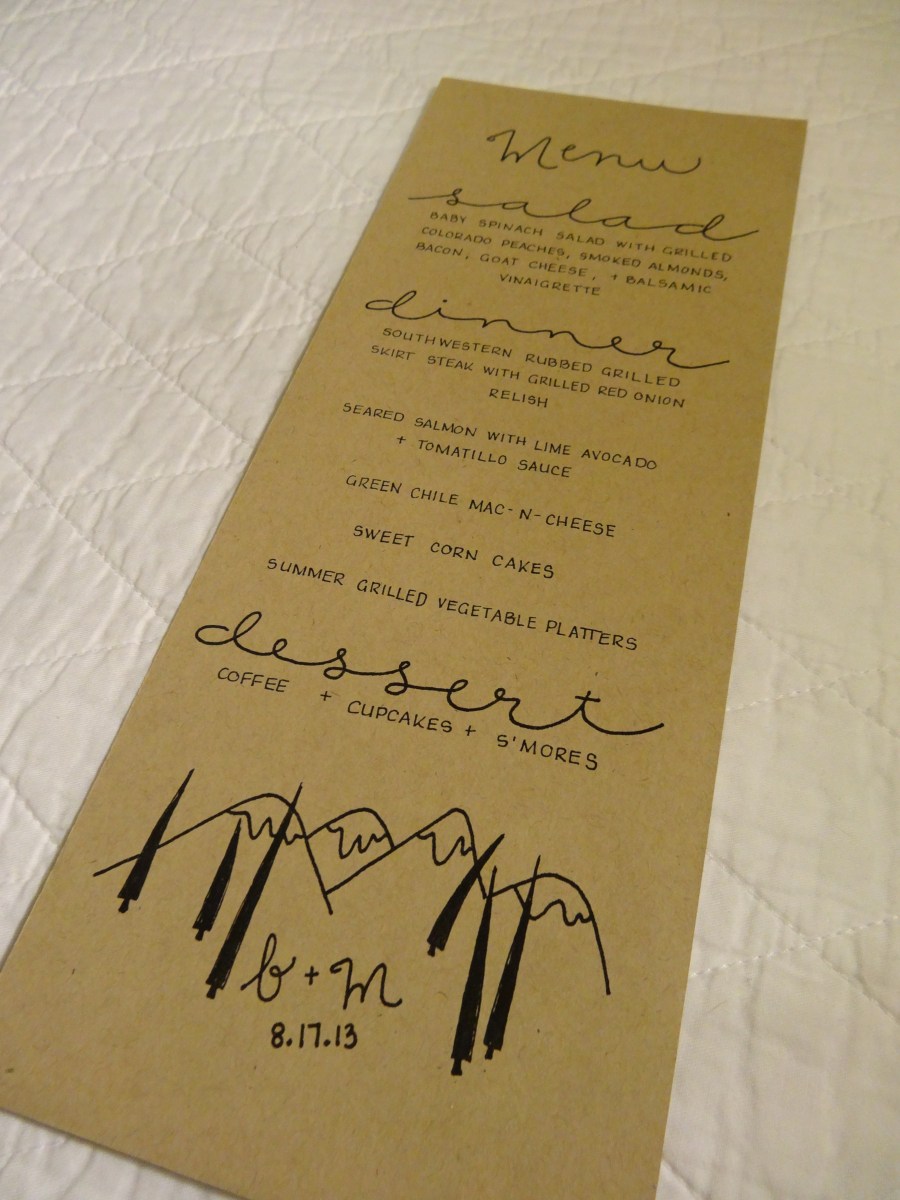 Menu
salad
BABY SPINACH SALAD WITH GRILLED
COLORADO PEACHES, SMOKED ALMONDS,
BACON, GOAT CHEESE, + BALSAMIC
VINAIGRETTE
dinner
SOUTHWESTERN RUBBED GRILLED
SKIRT STEAK WITH GRILLED RED ONION
RELISH
SEARED SALMON WITH LIME AVOCADO
+ TOMATILLO SAUCE
GREEN CHILE MAC-N-CHEESE
SWEET CORN CAKES
SUMMER GRILLED VEGETABLE PLATTERS
dessert
COFFEE + CUPCAKES + S'MORES
b + m
8.17.13